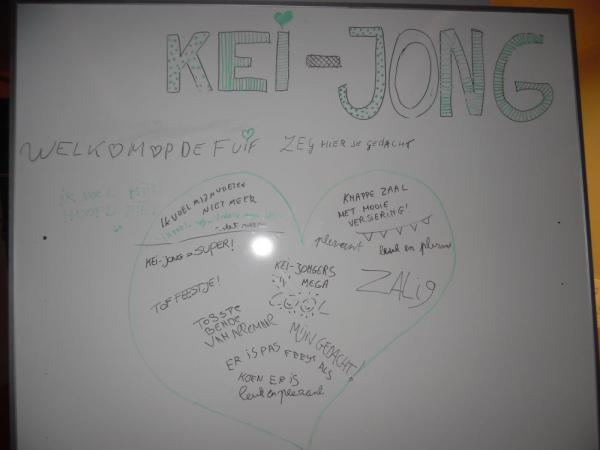 KEI-JONG
WELKOM OP DE FUIF
ZEG HIER JE GEDACHT
IK VOEL MIJN VOETEN
NIET MEER
KNAPPE ZAAL
MET MOOIE
VERSIERING!
KEI-JONG = SUPER!
plezant
leuk en plezant
KEI-JONGERS
MEGA
COOL
ZALIG
TOF FEESTJE!
TOFSTE
BENDE
VAN
MIJN GEDACHT!
ER IS PAS FEEST ALS
KOEN ER IS
leuk en plezant